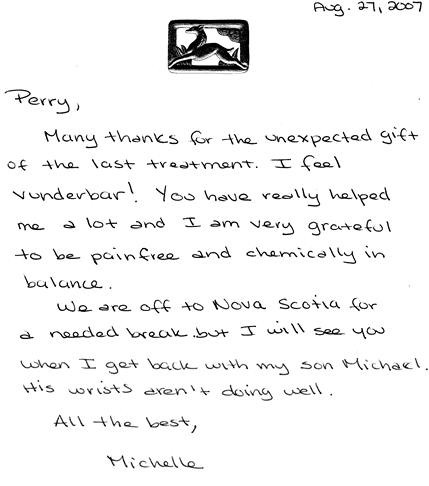 Aug. 27, 2007
Perry,
Many thanks for the unexpected gift
of the last treatment. I feel
vunderbar! You have really helped
me a lot and I am very grateful
to be painfree and chemically in
balance.
We are off to Nova Scotia for
a needed break but I will see you
when I get back with my son Michael.
His wrists aren't doing well.
All the best,
Michelle